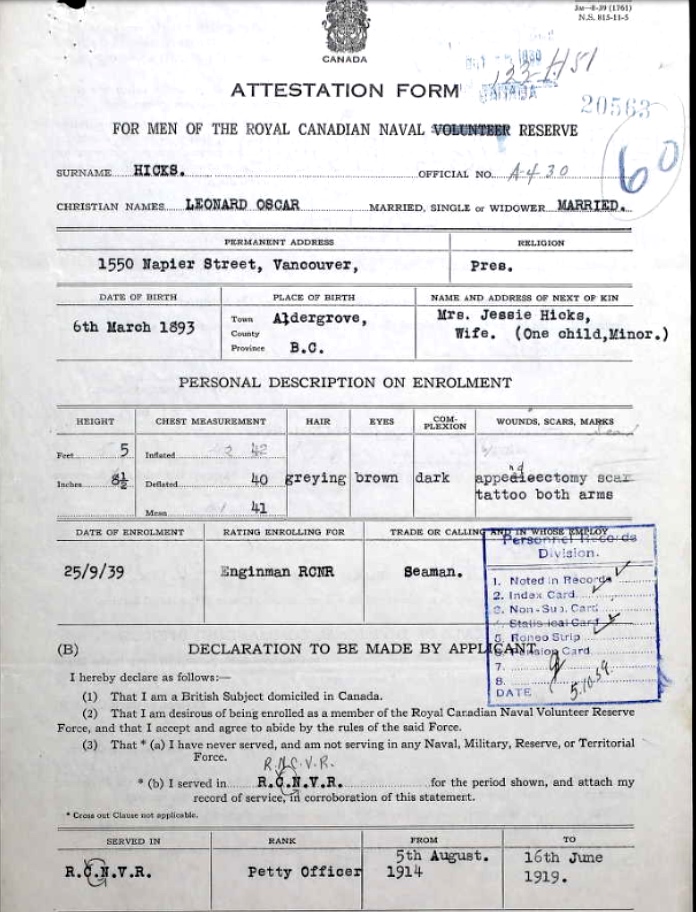 3M—8-39 (1761)
N.S. 815-11-5
CANADA
133-H51
CANADA
20563
ATTESTATION FORM
FOR MEN OF THE ROYAL CANADIAN NAVAL VOLUNTEER RESERVE
60
SURNAME HICKS. OFFICIAL NO. A-430
CHRISTIAN NAMES LEONARD OSCAR MARRIED, SINGLE or WIDOWER MARRIED.
PERMANENT ADDRESS RELIGION
1550 Napier Street, Vancouver, Pres.
DATE OF BIRTH PLACE OF BIRTH NAME AND ADDRESS OF NEXT OF KIN
6th March 1893 Town Aldergrove, Mrs. Jessie Hicks,
County Wife. (One child,Minor.)
Province B.C.
PERSONAL DESCRIPTION ON ENROLMENT
HEIGHT CHEST MEASUREMENT HAIR EYES COM-PLEXION WOUNDS, SCARS, MARKS
Feet 5 Inflated 42
Inches 8½ Deflated 40 greying brown dark appendectomy scar
tattoo both arms
Mean 41
DATE OF ENROLMENT RATING ENROLLING FOR TRADE OR CALLING AND IN WHOSE EMPLOY
25/9/39 Enginman RCNR Seaman.
Personnel Records
Division.
1. Noted in Records
2. Index Card
3. Non-Sub. Card
4. Statistical Card
5. Roneo Strip
6. Pension Card
7.
8.
DATE 5.10.39.
(B) DECLARATION TO BE MADE BY APPLICANT
I hereby declare as follows:—
(1) That I am a British Subject domiciled in Canada.
(2) That I am desirous of being enrolled as a member of the Royal Canadian Naval Volunteer Reserve
Force, and that I accept and agree to abide by the rules of the said Force.
(3) That * (a) I have never served, and am not serving in any Naval, Military, Reserve, or Territorial
Force.
R.N.C.V.R.
* (b) I served in R.C.N.V.R. for the period shown, and attach my
record of service, in corroboration of this statement.
* Cross out Clause not applicable.
SERVED IN RANK FROM TO
R.C.N.V.R. Petty Officer 5th August. 16th June
1914 1919.